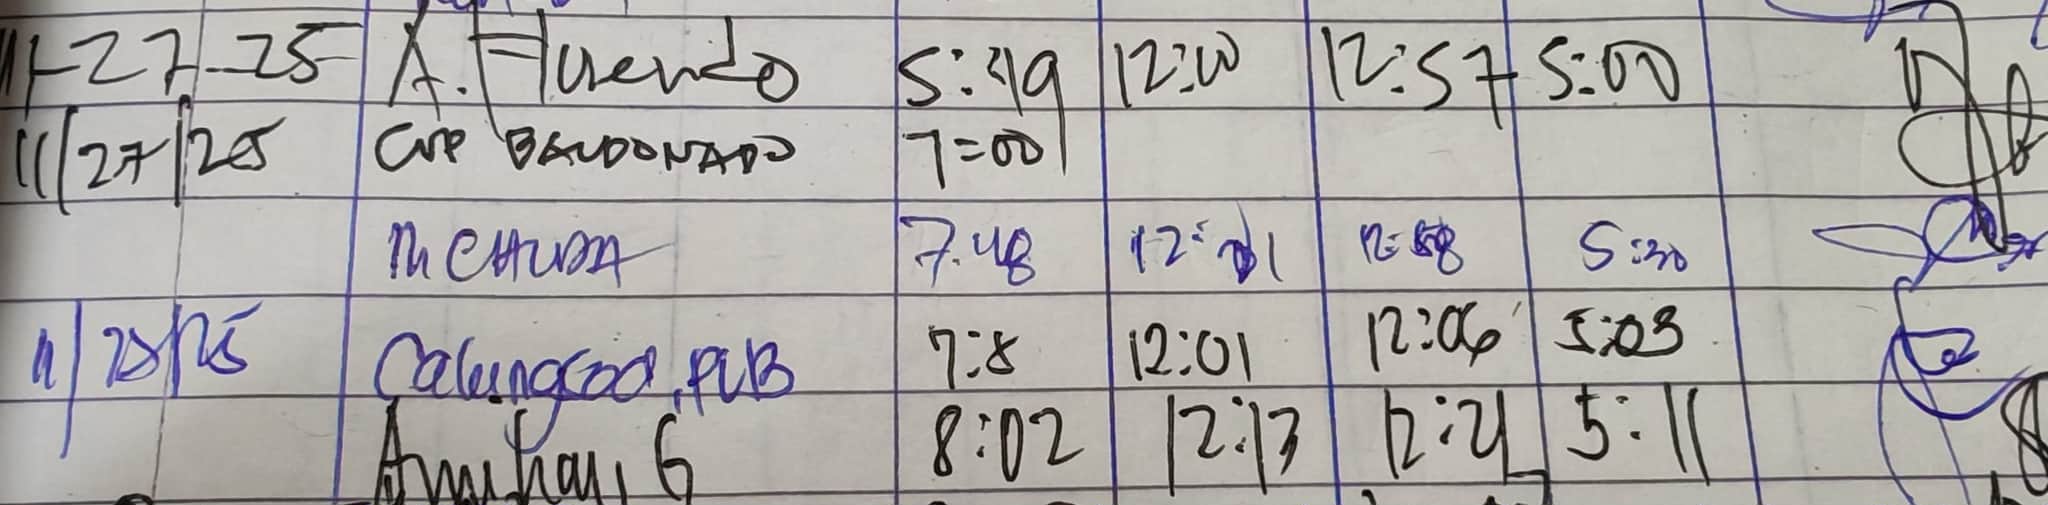 11-27-25 A. Fluendo 5:49 12:00 12:57 5:00
11/27/25 BALDONADO 7=00
7:48 12: 1 12:58 5:30
11/28/25 Calungsod, PVB 7:8 12:01 12:06 5:03
Amihan, G 8:02 12:13 12:21 5:11